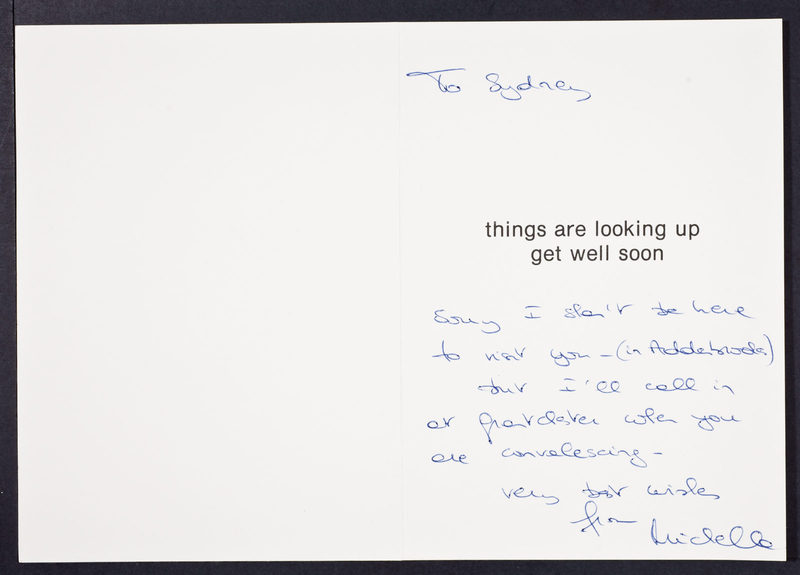 To Sydney
things are looking up
get well soon
Sorry I shan't be here
to visit you - (in Addenbrookes)
but I'll call in
at Grantchester when you
are convalescing -
very best wishes
from Michelle